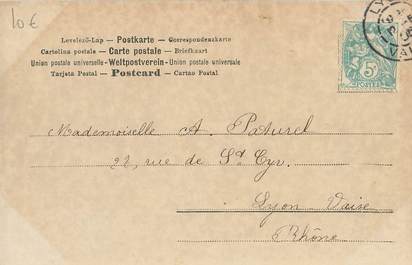 10 €
Levelező-Lap — Postkarte — Correspondenzkarte
Cartolina postale — Carte postale — Briefkaart
Union postale universelle — Weltpostverein — Union postale universale
Tarjeta Postal — Postcard — Cartao Postal
5
Mademoiselle A. Paturel
22, rue de St Cyr.
Lyon Vaise
Rhône